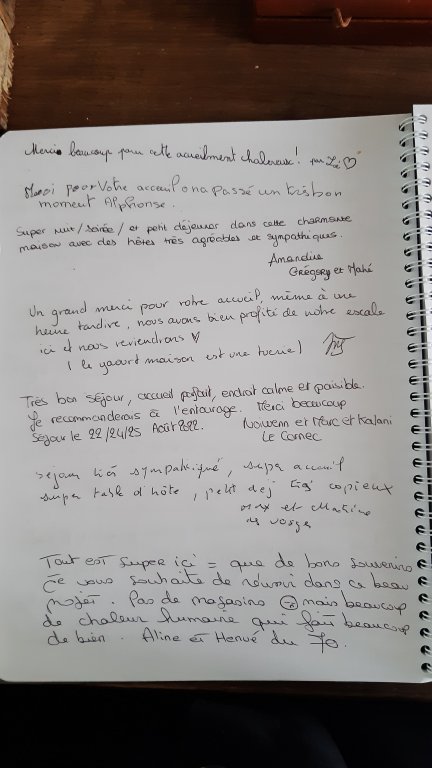 Merci beaucoup pour cette accueilment chaleureux! par Zoé ♡
Merci pour Votre acceuil on a passé un trés bon
moment Alphonse.
Super nuit/soirée/et petit déjeuner dans cette charmante
maison avec des hôtes très agréables et sympathiques.
Amandine
Grégory et Mahé
Un grand merci pour votre accueil, même à une
heure tardive, nous avons bien profité de notre escale
ici et nous reviendrons ♡
(le yaourt maison est une tuerie)
Très bon séjour, accueil parfait, endroit calme et paisible.
Je recommanderais à l'entourage. Merci beaucoup
Séjour le 22/24/25 Août 2022. Nolwenn et Marc et Kalani
Le Cornec
Séjour très sympathique, super accueil
super table d'hôte, petit dej très copieux
et Martine
des vosges
Tout est super ici = que de bons souvenirs
Je vous souhaite de réussir dans ce beau
projet. Pas de magasins mais beaucoup
de chaleur humaine qui fait beaucoup
de bien. Aline et Hervé du 70.